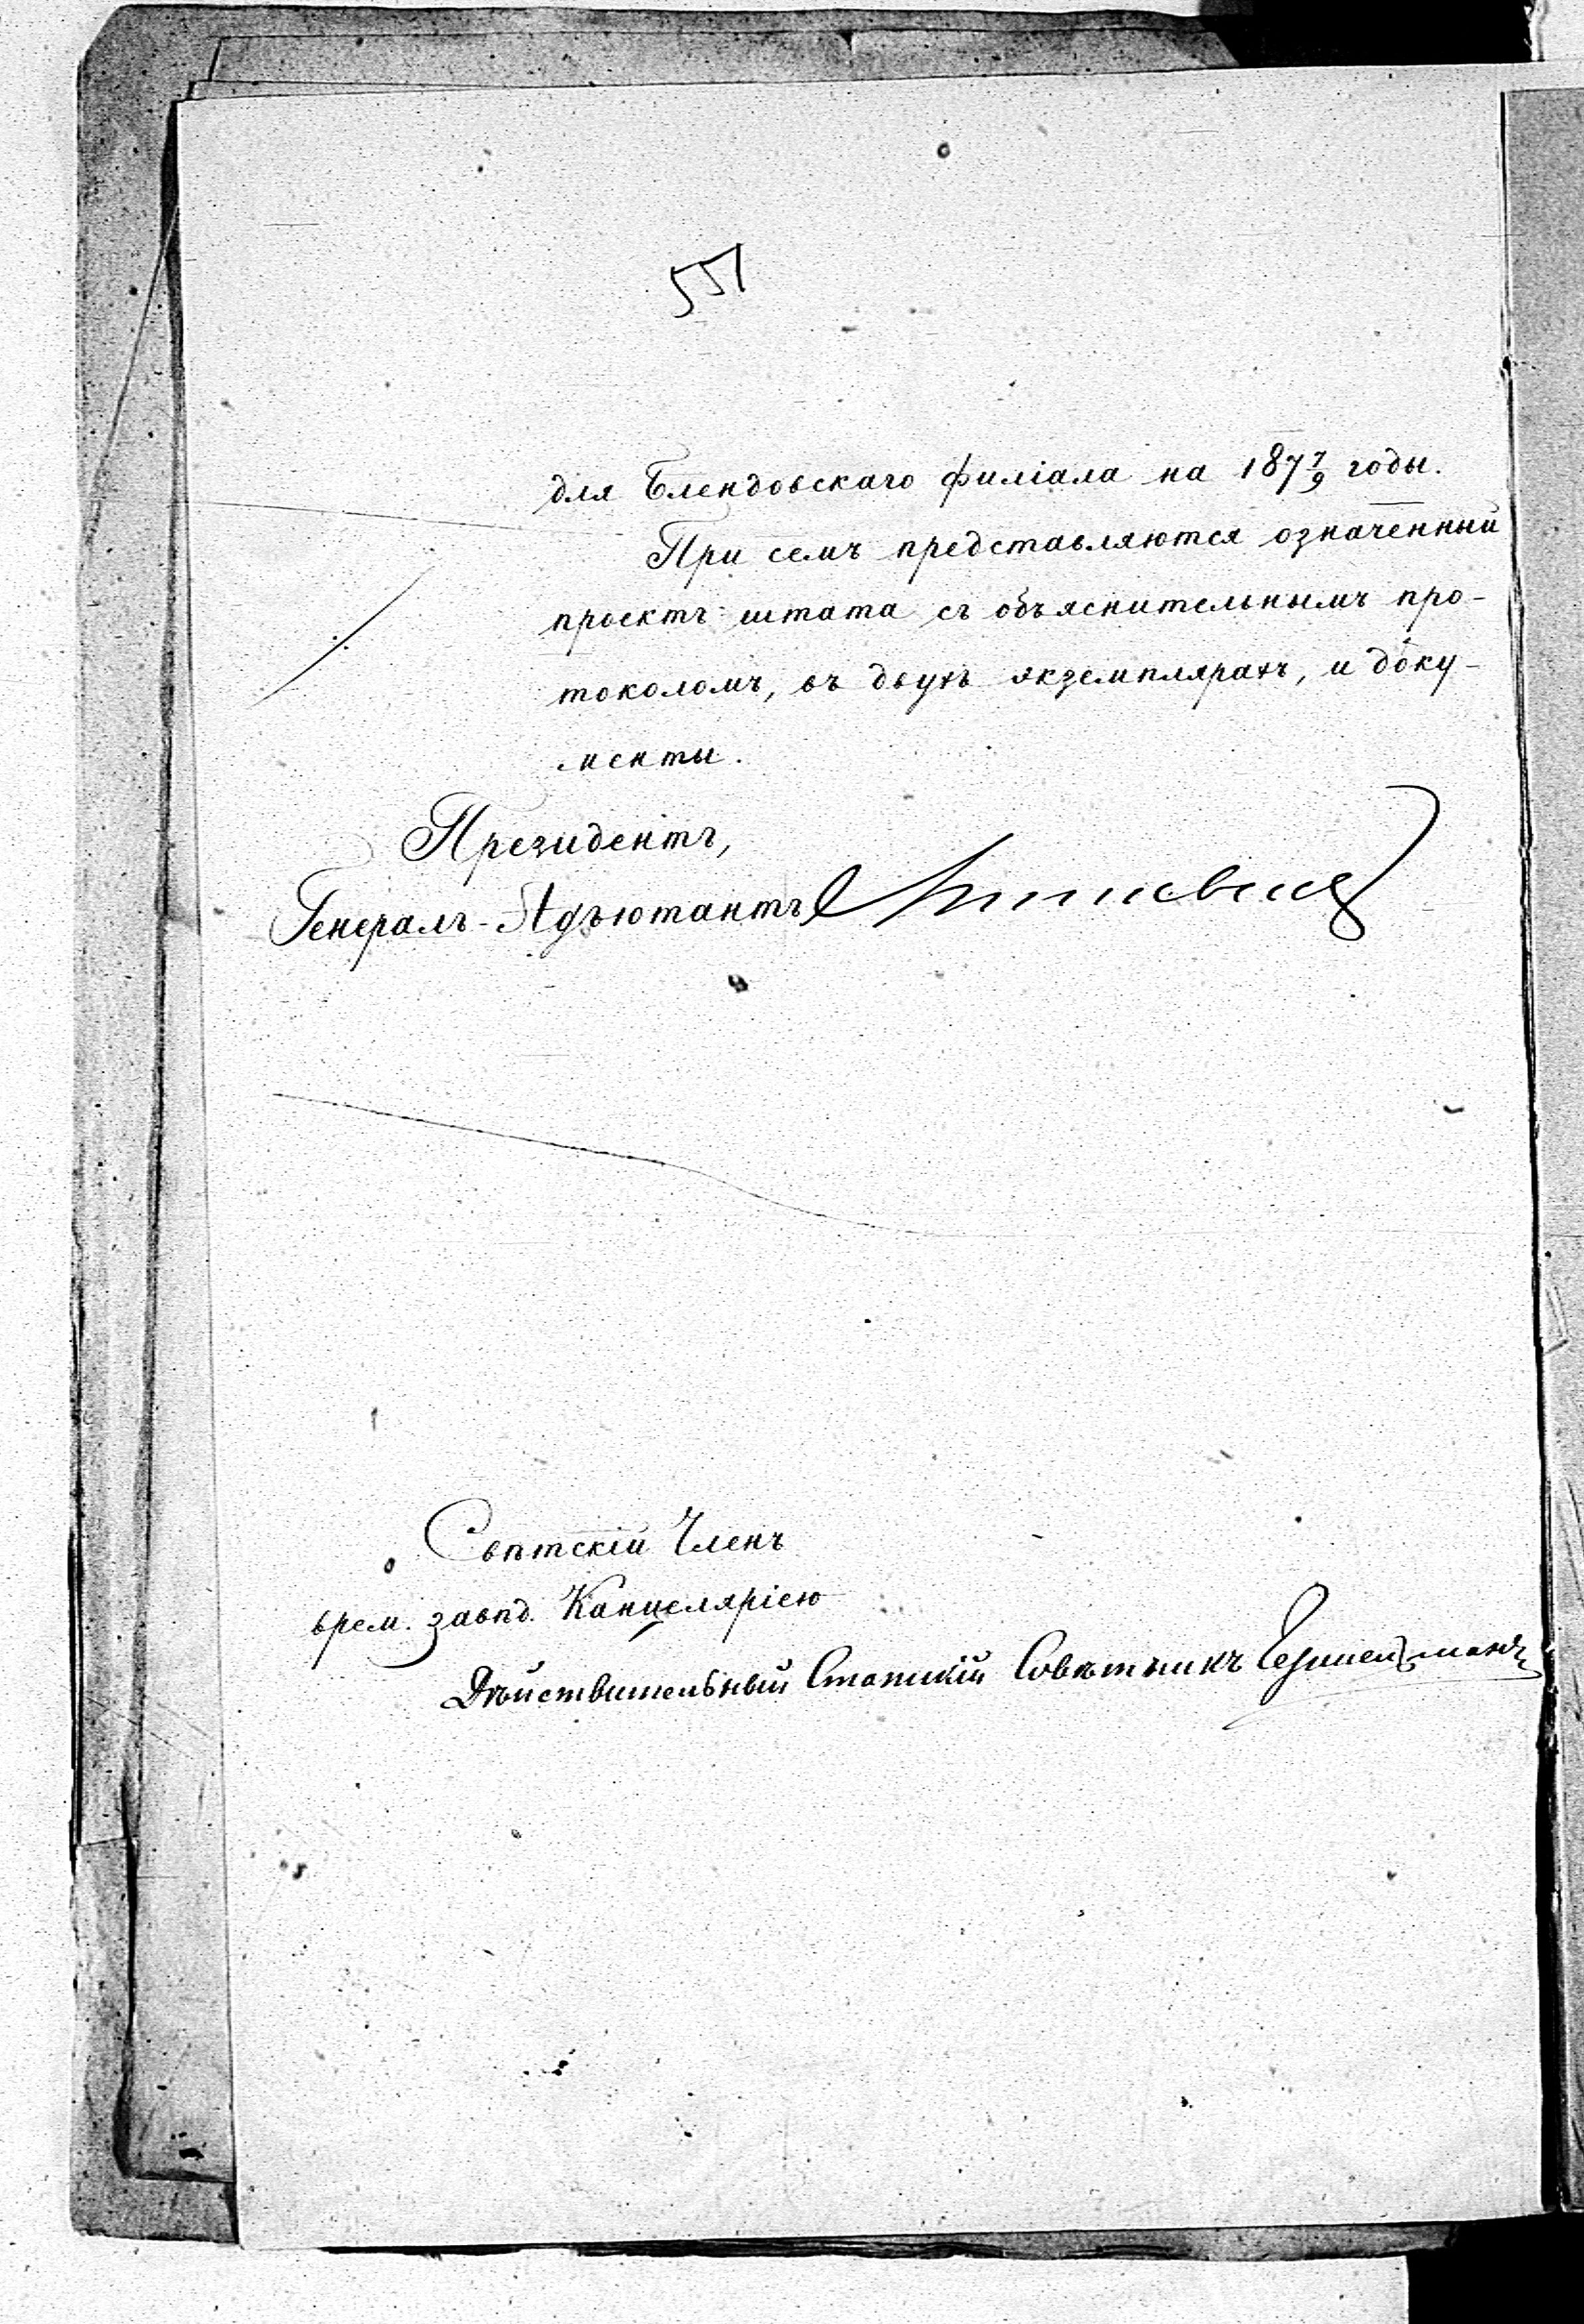 551
для Блендовскаго филіала на 187 7/9 годы.
При семъ представляются означенный
проектъ штата съ объяснительнымъ про-
токоломъ, въ двухъ экземплярахъ, и доку-
менты.
Президентъ,
Генералъ-Адъютантъ
Свѣтскій Членъ
врем. завѣд. Канцеляріею
Дѣйствительный Статскій Совѣтникъ